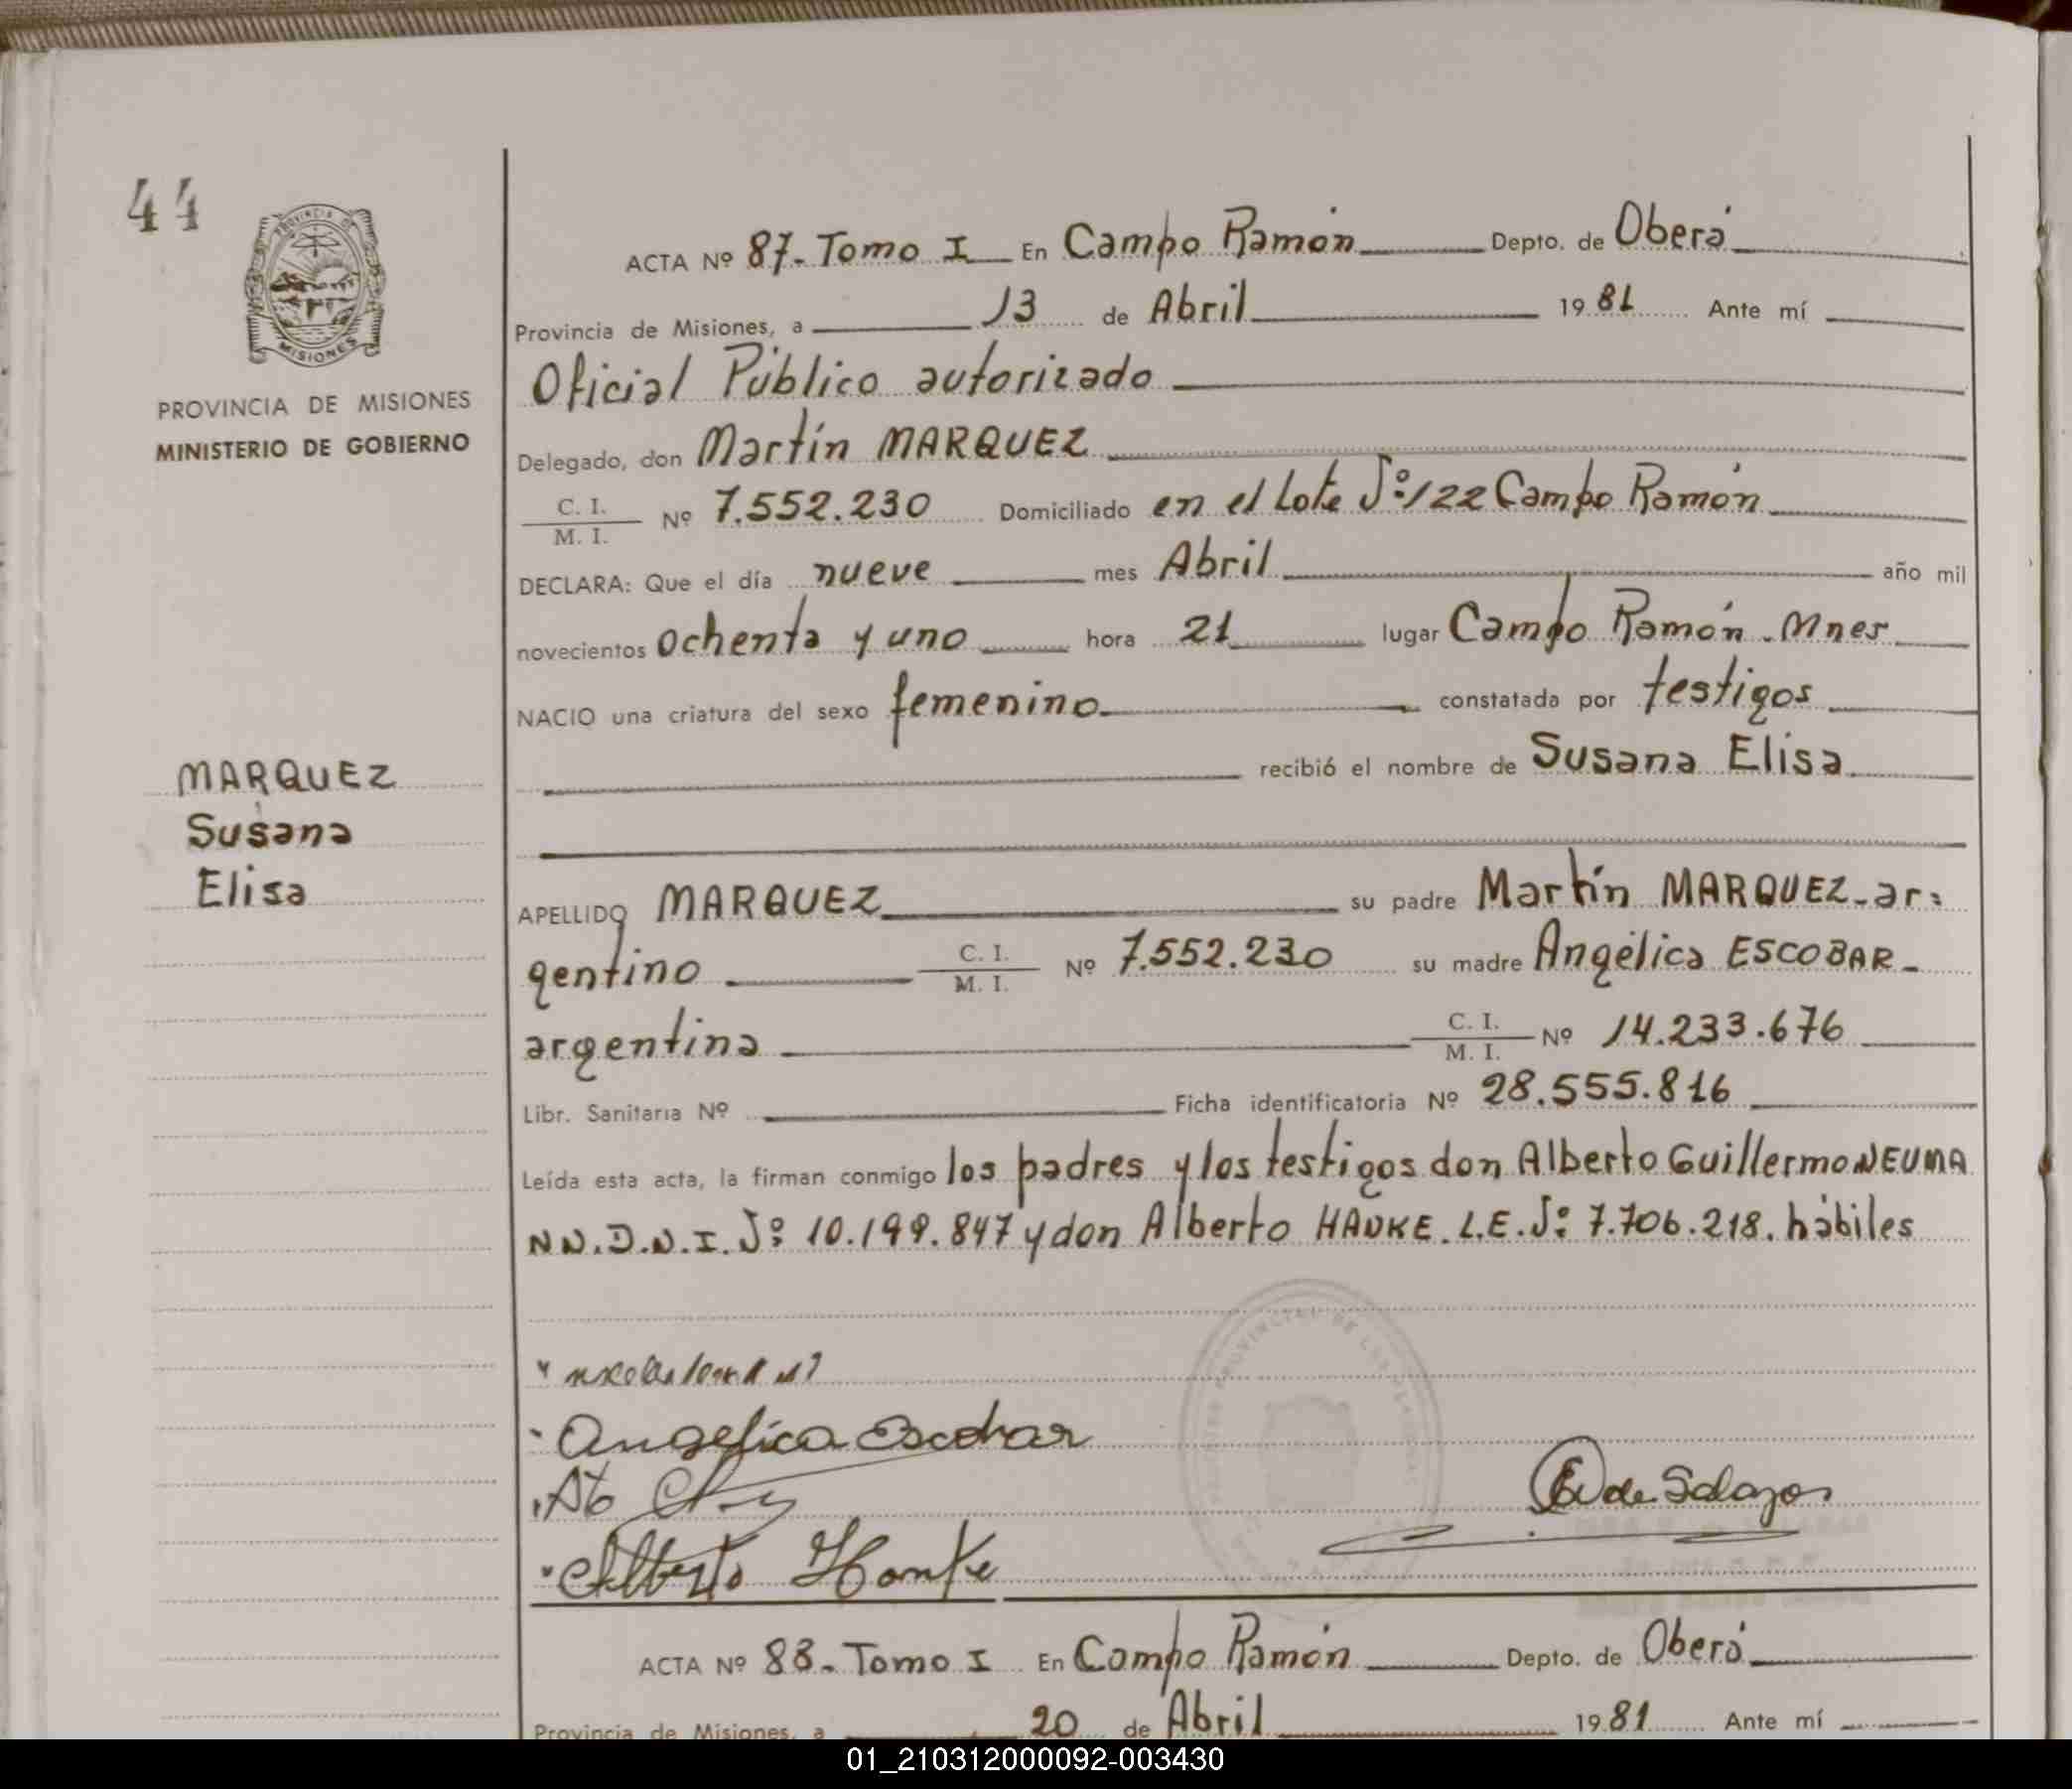 44
PROVINCIA DE MISIONES
PROVINCIA DE MISIONES
MINISTERIO DE GOBIERNO
MARQUEZ
Susana
Elisa
ACTA Nº 87- Tomo I En Campo Ramón Depto. de Oberá
Provincia de Misiones, a 13 de Abril 1981 Ante mí
Oficial Público autorizado
Delegado, don Martín MARQUEZ
C. I.
M. I. Nº 7.552.230 Domiciliado en el Lote Nº 122 Campo Ramón
DECLARA: Que el día nueve mes Abril año mil
novecientos ochenta y uno hora 21 lugar Campo Ramón - Mnes
NACIO una criatura del sexo femenino constatada por testigos
recibió el nombre de Susana Elisa
APELLIDO MARQUEZ su padre Martín MARQUEZ - ar=
gentino C. I. M. I. Nº 7.552.230 su madre Angélica ESCOBAR -
argentina C. I. M. I. Nº 14.233.676
Libr. Sanitaria Nº Ficha identificatoria Nº 28.555.816
Leída esta acta, la firman conmigo los padres y los testigos don Alberto Guillermo NEUMA
NN. D.N.I. Nº 10.199.847 y don Alberto HAUKE. L.E. Nº 7.706.218. hábiles
Angelica Escobar
Alberto Hauke
de Salazar
ACTA Nº 88- Tomo I En Campo Ramón Depto. de Oberá
Provincia de Misiones, a 20 de Abril 1981 Ante mí
01_210312000092-003430